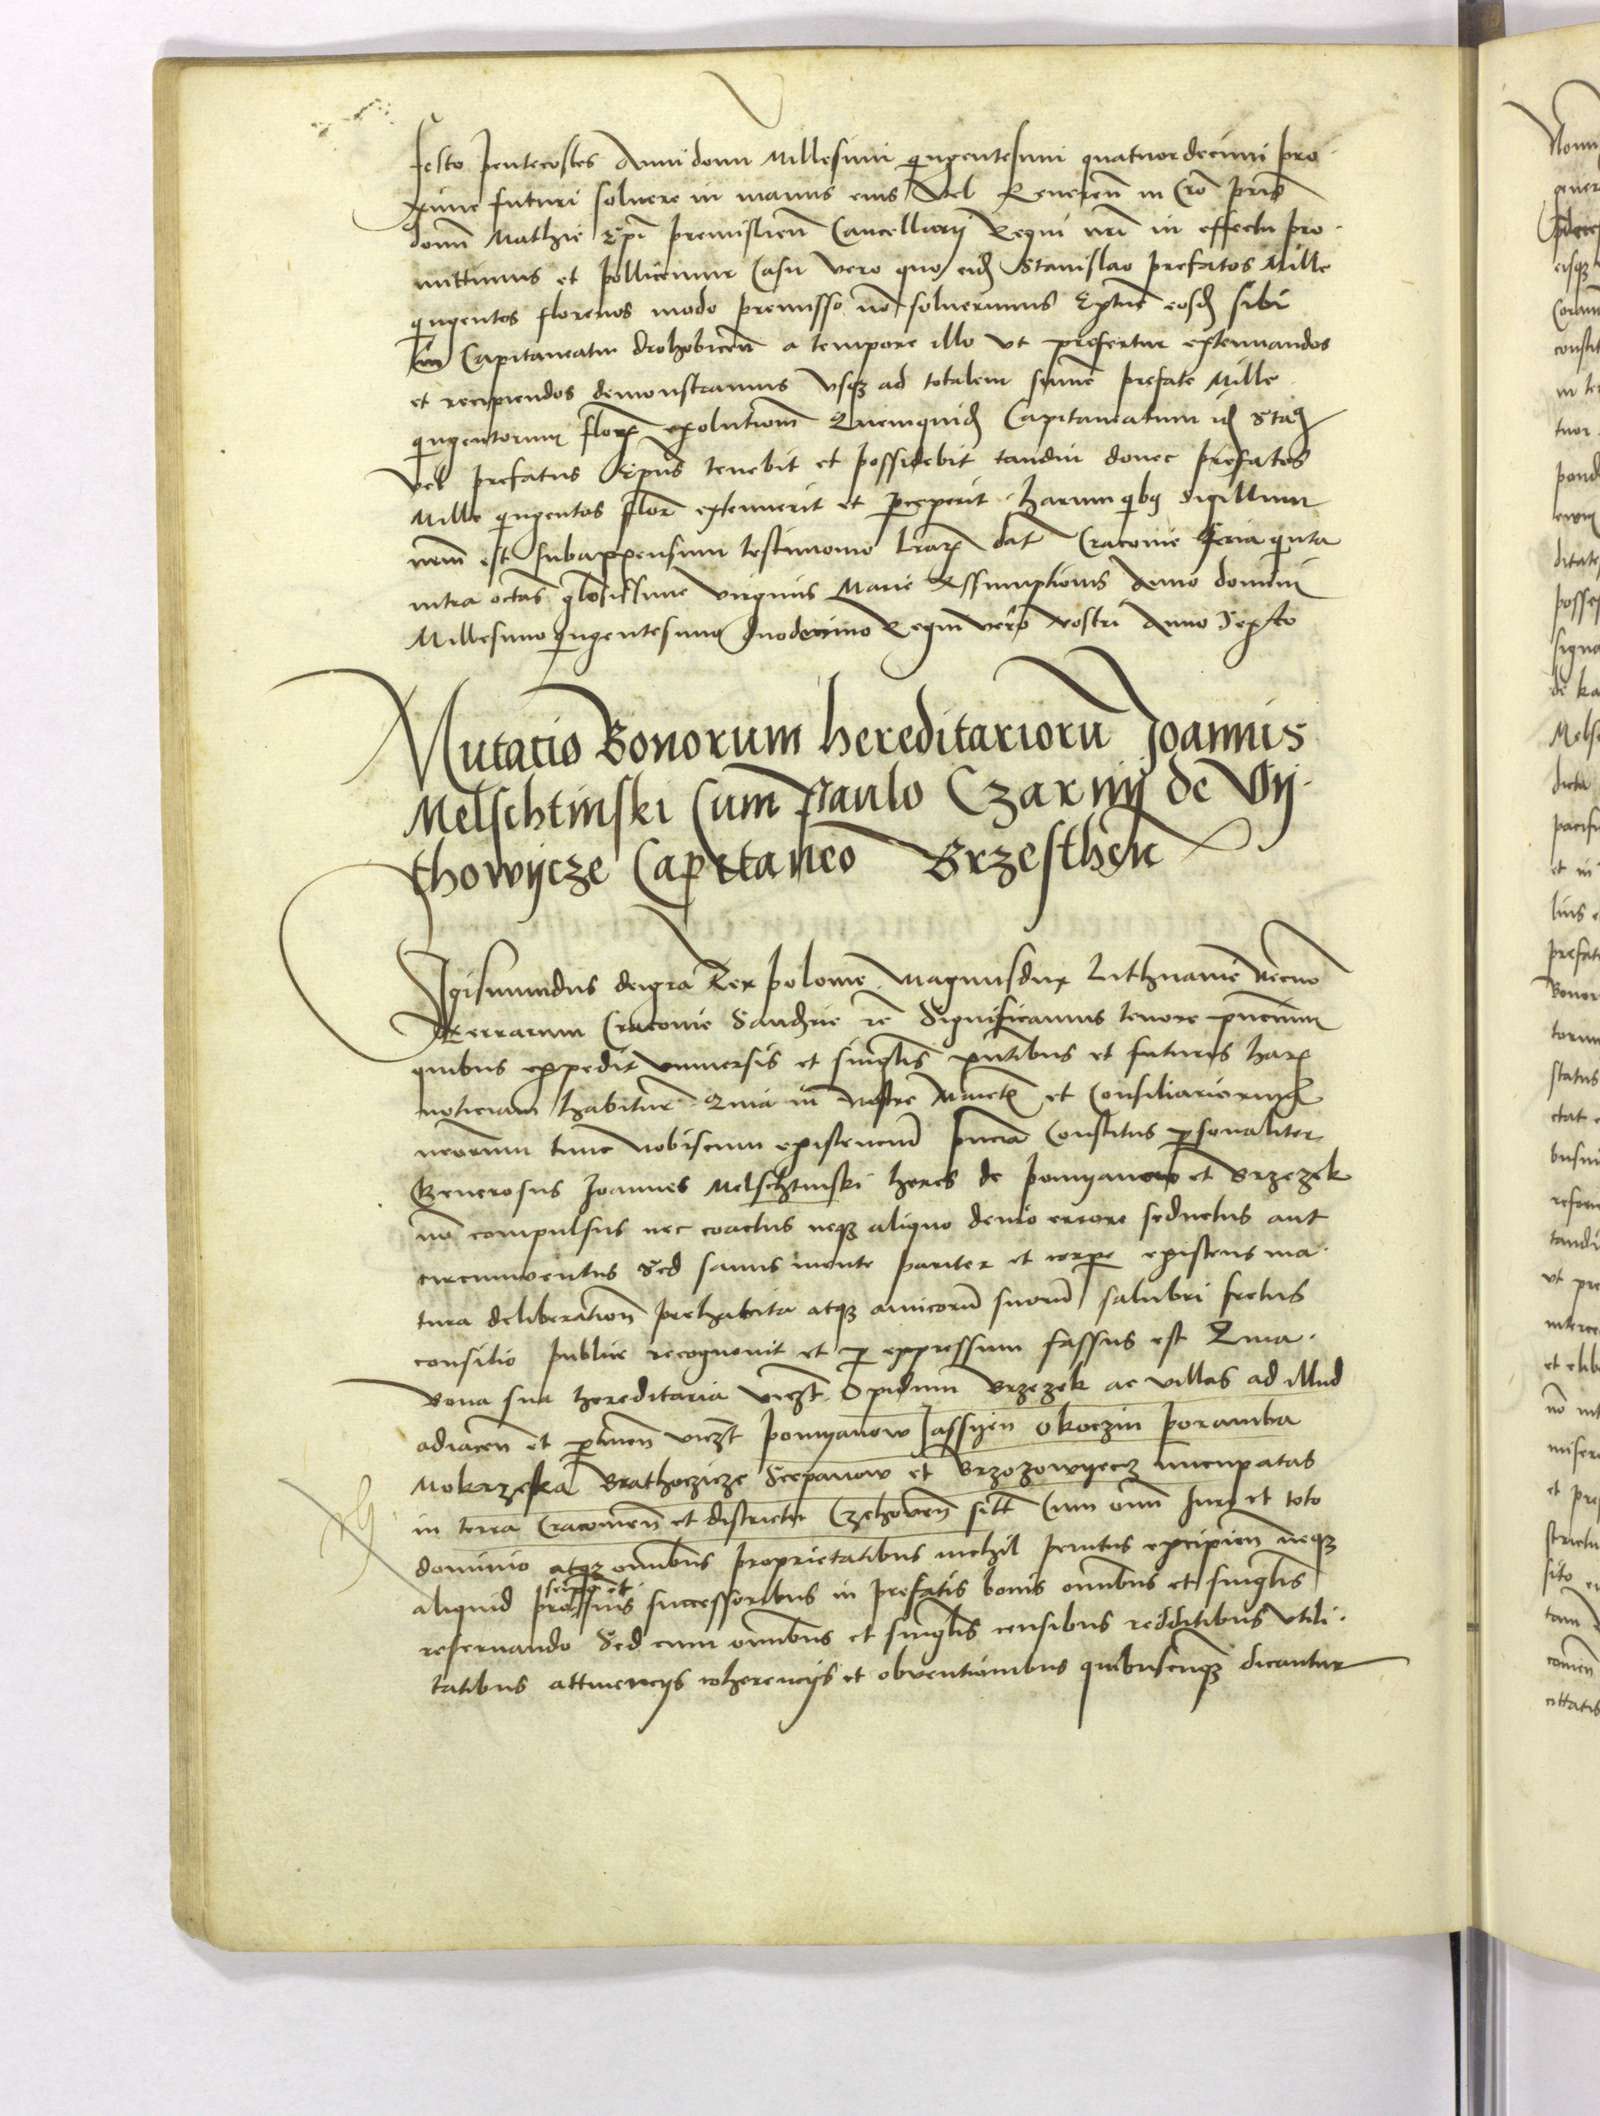 festo pentecostes Anni domi Millesimi qingentesimi quatuordecimi pro
xime futuri soluere in manus eius vel Reueren in Cro pris
domi Mathie Epi premislien Cancellarij Regni nri in effectu pro
mittimus et pollicemur Casu vero quo eid Stanislao prefatos Mille
qingentos florenos modo premisso no soluerimus Extuc eosd sibi
in Capitaneatu drohobicen a tempore illo vt prefertur extenuandos
et recipiendos demonstramus vsq ad totalem summe prefate Mille
qingentorum flor exolutiom Quemquid Capitaneatum id Sta
vel prefatus Epus tenebit et possidebit tandiu donec prefatos
Mille qingentos flor extenuerit et pceperit harum qbq sigillum
nrm est subappensum testimonio lrar dat Cracouie feria qinta
intra octas gloesissime virginis Marie Assumptionis Anno domini
Millesimo qingentesimo duodecimo Regni vero nostri Anno Sexto
Mutatio Bonorum hereditarioru Joannis
Melschtinski Cum Paulo Czarnij de Vij
thowijcze Capitaneo Brzesthen
Sigismundus dei gra Rex polonie Magnusdux Lithuanie Necno
Terrarum Cracouie Sandzie re Significamus tenore pncium
quibus expedit vniuersis et singlis pntibus et futuris har
noticiam habitur Quia in nostre Maiet et Consiliariorum
nrorum tunc nobiscum existenciu pncia Constitus psonaliter
Generosus Joannes Melschtinski heres de pomijanow et Brzezek
no compulsus nec coactus neq aliquo deuio errore seductus aut
circumuentus Sed sanus mente pariter et corpe existens ma
tura deliberation prehabita atq amicoru suoru salubri fretus
consilio publice recognouit et p expressum fassus est Quia
bona sua hereditaria vizt Opidum Brzezek ac villas ad illud
adiacen et ptinen vizt Pomijanow Jassijen Okoczin Poramba
Mokrzeska Brathoczicze Sczepanow et Brzozowijecz nuncupatas
in terra Cracouien et districtu Czchouen sitt Cum omi Jure et toto
dominio atq omibus proprietatibus nichil penitus excipien neq
aliquid pro seipso et suis successoribus in prefatis bonis omibus et singlis
reseruando Sed cum omibus et singlis censibus redditibus vtili
tatibus attinencijs coherencijs et obuentionibus quibuscunq dicantur